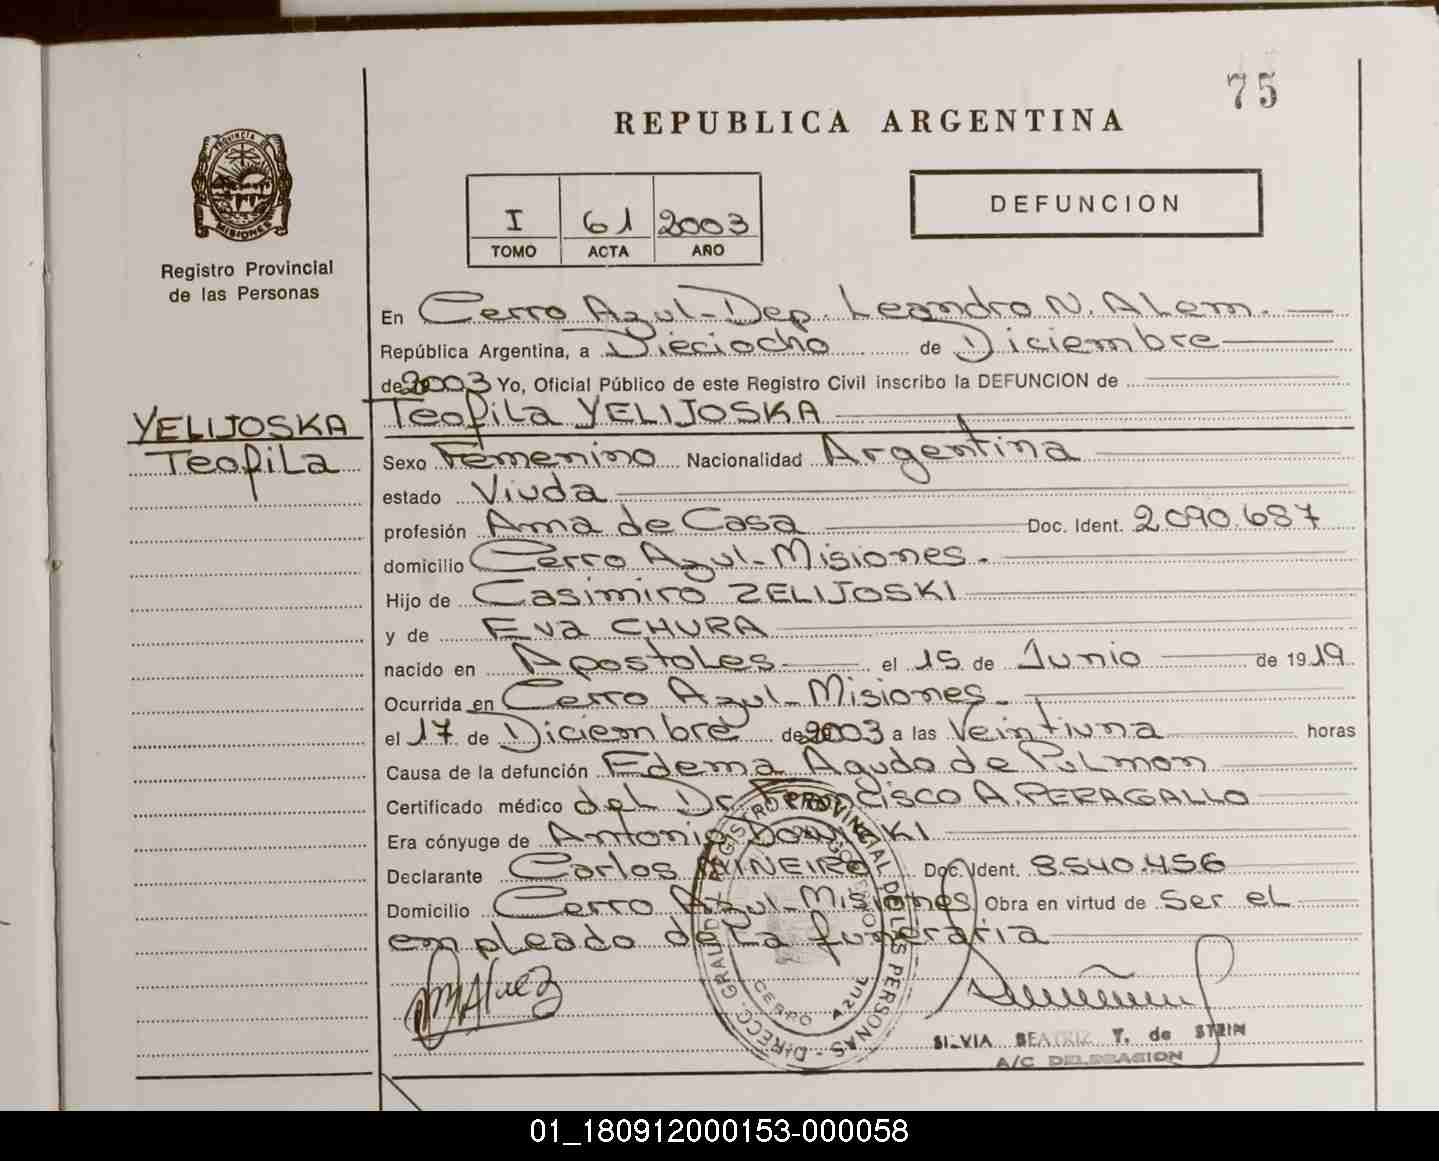 75
REPUBLICA ARGENTINA
PROVINCIA DE
MISIONES
Registro Provincial
de las Personas
I 61 2003
TOMO ACTA AÑO
DEFUNCION
En Cerro Azul-Dep. Leandro N. Alem.
República Argentina, a Dieciocho de Diciembre
de 2003 Yo, Oficial Público de este Registro Civil inscribo la DEFUNCION de
YELIJOSKA
Teofila
Teofila YELIJOSKA
Sexo Femenino Nacionalidad Argentina
estado Viuda
profesión Ama de Casa Doc. Ident. 2090.687
domicilio Cerro Azul-Misiones.
Hijo de Casimiro ZELIJOSKI
y de Eva CHURA
nacido en Apostoles el 15 de Junio de 1919
Ocurrida en Cerro Azul-Misiones.
el 17 de Diciembre de 2003 a las Veintiuna horas
Causa de la defunción Edema Agudo de Pulmon
Certificado médico del Dr Francisco A. PERAGALLO
Era cónyuge de Antonio
Declarante Carlos MINEIRO Doc. Ident. 8.540.456
Domicilio Cerro Azul-Misiones Obra en virtud de Ser el
empleado de la funeraria
REGISTRO PROVINCIAL DE LAS PERSONAS
CERRO AZUL
SILVIA BEATRIZ T. de STEIN
A/C DELEGACION
01_180912000153-000058